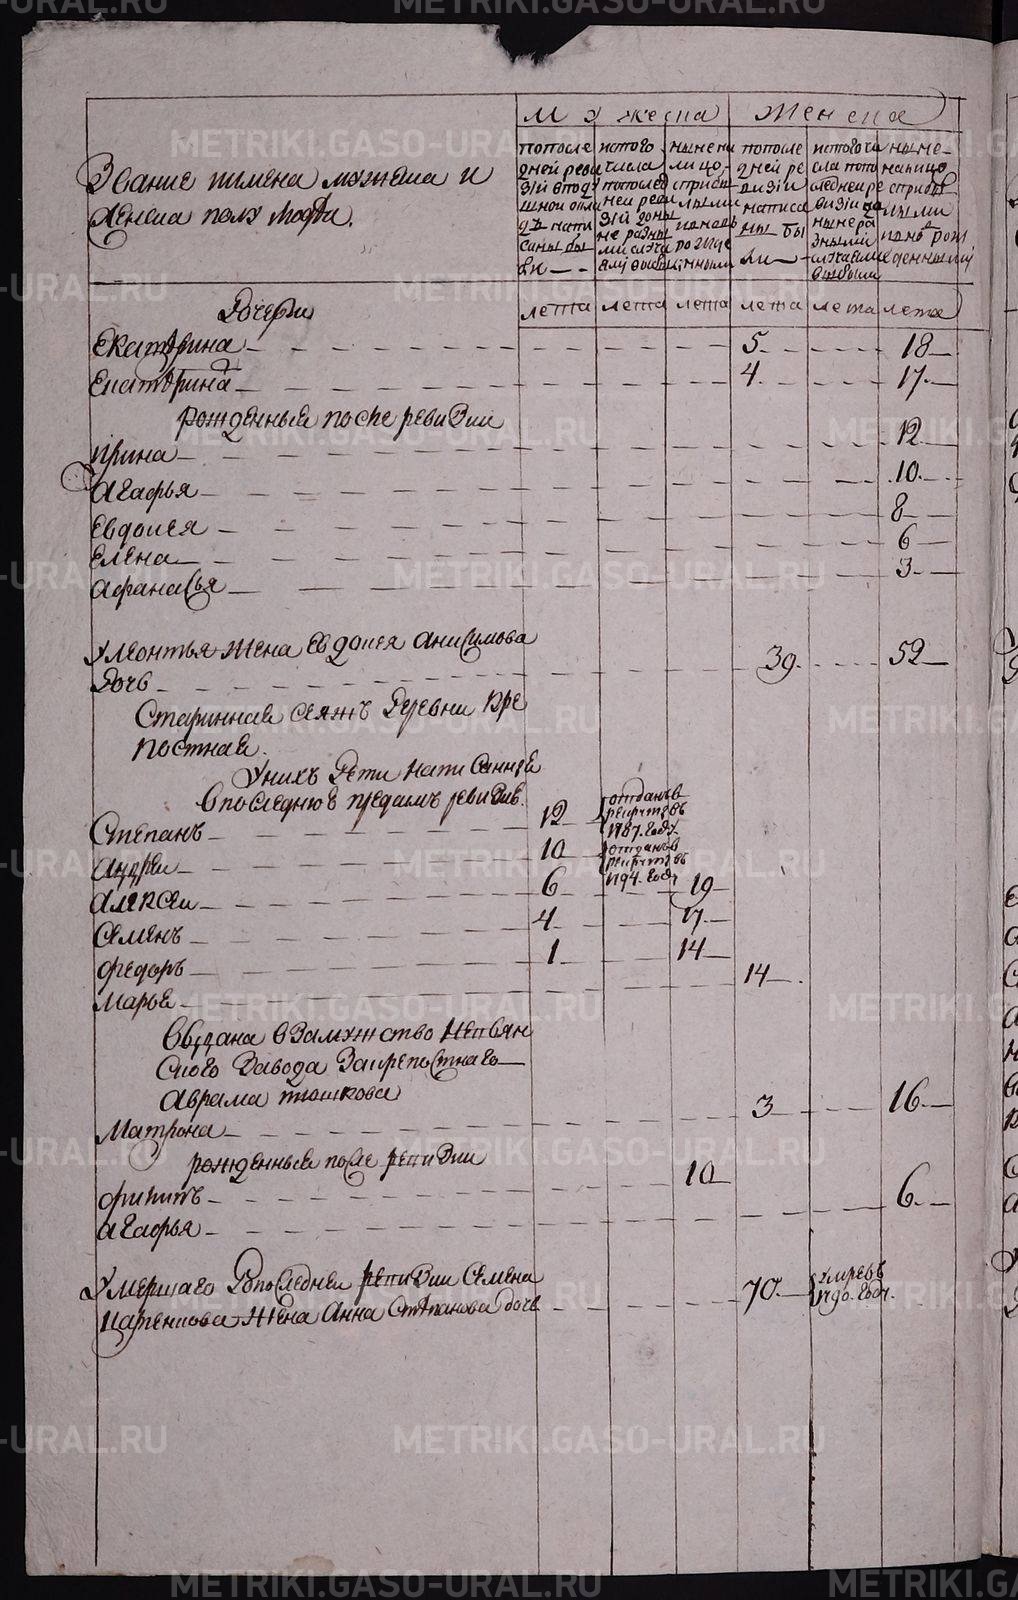 Мужеска
Женска
Звание имена мужеска и
женска полу людей
по после
дней реви
зіи в поду
шной окла
дъ напи
саны бы
ли
ис того
числа
после послед
ней реви
зіи
разны
ми случа
ями выбыли
ныне на
лицо
с прибы
лыми
и вновь
рожде
нными
по после
дней ре
визіи
написа
ны бы
ли
ис того чи
сла после по
следней ре
визіи до
ныне ра
зными
случаями
выбыли
ныне
налицо
с прибы
лыми
и вновь рож
денными
лета лета лета лета лета лета
Дочери
Екатерина 5 18
Екатерина 4 17
рожденные после ревизии
Ирина 12
Агафья 10
Евдокея 8
Елена 6
Афанасья 3
У Леонтья жена Евдокея Анисимова
дочь 39 52
Старинная сяжъ деревни кре
постная.
У них дети написанные
в последнюю пред симъ ревизию
Степанъ 12 отданъ в рекруты въ 1787. году
Андреи 10 отданъ в рекруты въ 1794. году
Алексеи 6 19
Семенъ 4 17
Федоръ 1 14
Марья 14
выдана в замужство Невьян
ского завода за крепостнаго
Аврама
Матрона 3 16
рожденные после ревизии
Филипъ 10
Агафья 6
Умершаго в последней ревизии Семена
жена Анна Степанова дочь 70 умре въ 1790. году
METRIKI.GASO-URAL.RU